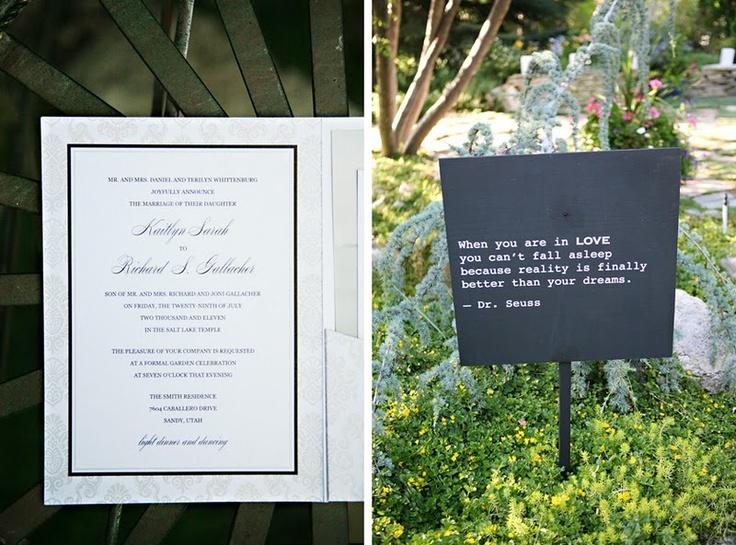 MR. AND MRS. DANIEL AND TERILYN WHITTENBURG
JOYFULLY ANNOUNCE
THE MARRIAGE OF THEIR DAUGHTER
Kaitlyn Sarah
TO
Richard S. Gallacher
SON OF MR. AND MRS. RICHARD AND JONI GALLACHER
ON FRIDAY, THE TWENTY-NINTH OF JULY
TWO THOUSAND AND ELEVEN
IN THE SALT LAKE TEMPLE
THE PLEASURE OF YOUR COMPANY IS REQUESTED
AT A FORMAL GARDEN CELEBRATION
AT SEVEN O'CLOCK THAT EVENING
THE SMITH RESIDENCE
7604 CABALLERO DRIVE
SANDY, UTAH
light dinner and dancing
When you are in LOVE
you can't fall asleep
because reality is finally
better than your dreams.
— Dr. Seuss